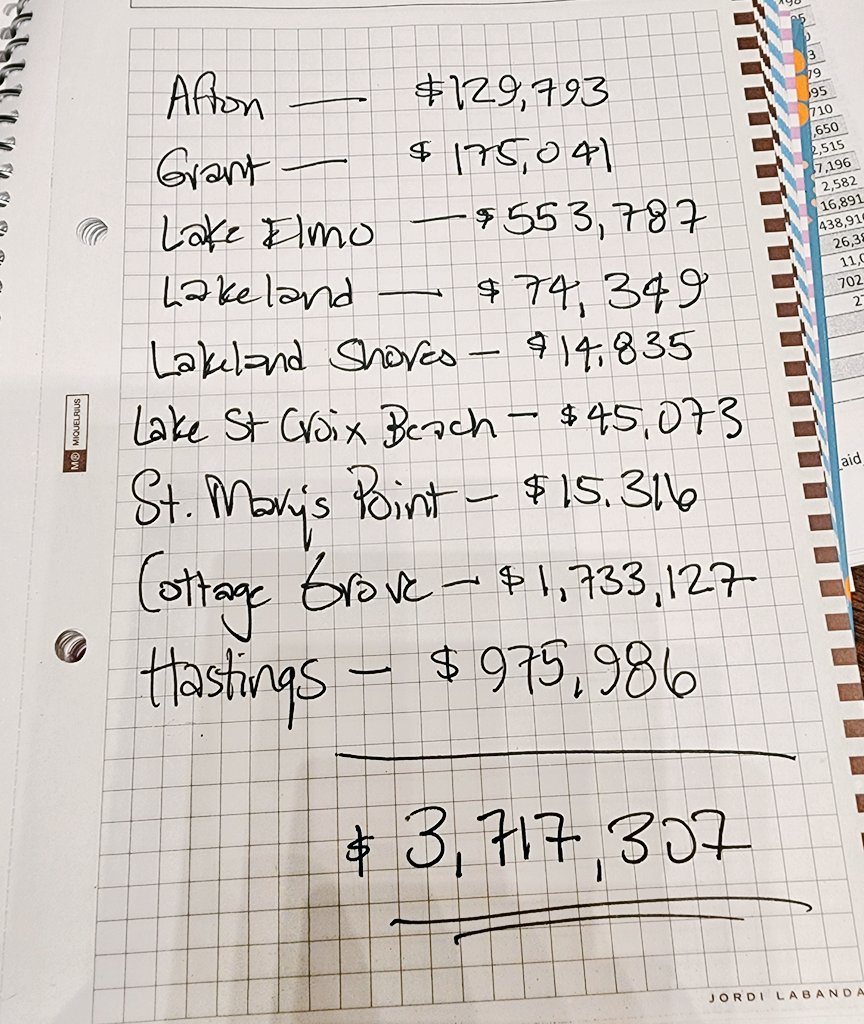 Afton — $129,793
Grant — $175,041
Lake Elmo — $553,787
Lakeland — $74,349
Lakeland Shores — $14,835
Lake St Croix Beach — $45,073
St. Mary's Point — $15.316
Cottage Grove — $1,733,127
Hastings — $975,986
$3,717,307
M® MIQUELRIUS
JORDI LABANDA
710
,650
2,515
7,196
2,582
16,891
438,91
26,3
11,0
702
2
aid